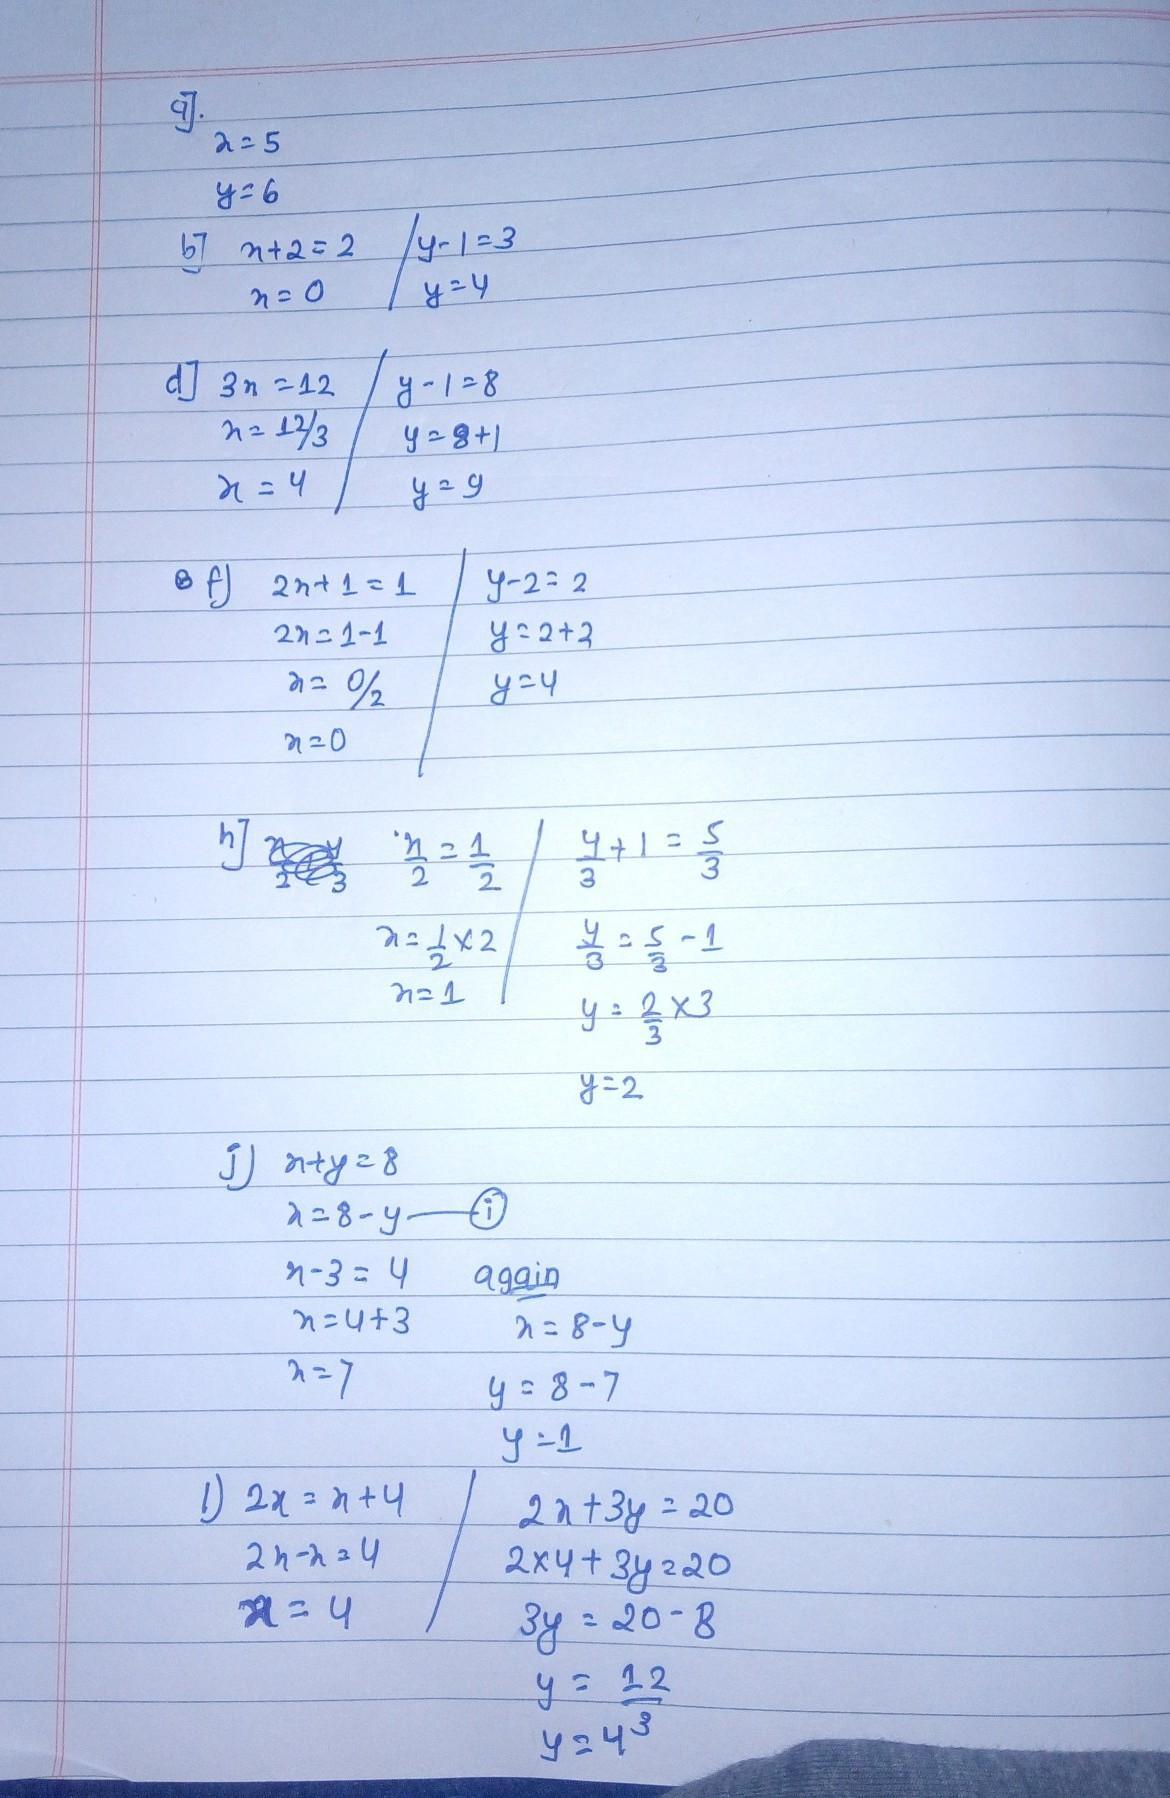 a].
x=5
y=6
b] x+2=2 / y-1=3
x=0 / y=4
d] 3x=12 / y-1=8
x=12/3 y=8+1
x=4 / y=9
f) 2x+1=1 / y-2=2
2x=1-1 y=2+2
x=0/2 y=4
x=0
h] x/2=1/2 / y/3+1=5/3
x=1/2×2 y/3=5/3-1
x=1 y=2/3×3
y=2
j) x+y=8
x=8-y — (i)
x-3=4 again
x=4+3 x=8-y
x=7 y=8-7
y=1
l) 2x=x+4 / 2x+3y=20
2x-x=4 2×4+3y=20
x=4 / 3y=20-8
y=12/3
y=4